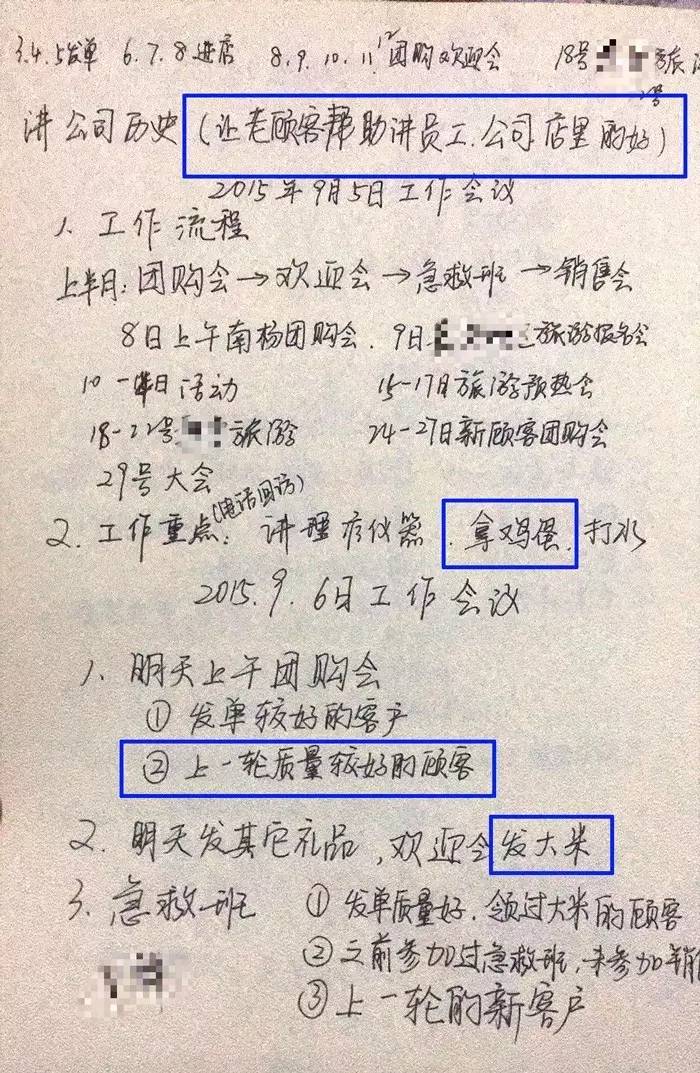 3.4.5发单 6.7.8进店 8.9.10.11.12团购欢迎会 18号 旅游
讲公司历史(让老顾客帮助讲员工.公司店里的好)
2015年9月5日工作会议
1、工作流程
上半月:团购会→欢迎会→急救班→销售会
8日上午南杨团购会.9日 旅游报名会
活动 15-17日旅游预热会
18-22号 旅游 24-27日新顾客团购会
29号大会
2.工作重点:(电话回访)讲理疗仪器.拿鸡蛋.打水
2015.9.6日工作会议
1、明天上午团购会
①发单较好的客户
②上一轮质量较好的顾客
2.明天发其它礼品,欢迎会发大米
3.急救班 ①发单质量好.领过大米的顾客
②之前参加过急救班,未参加销
③上一轮的新客户